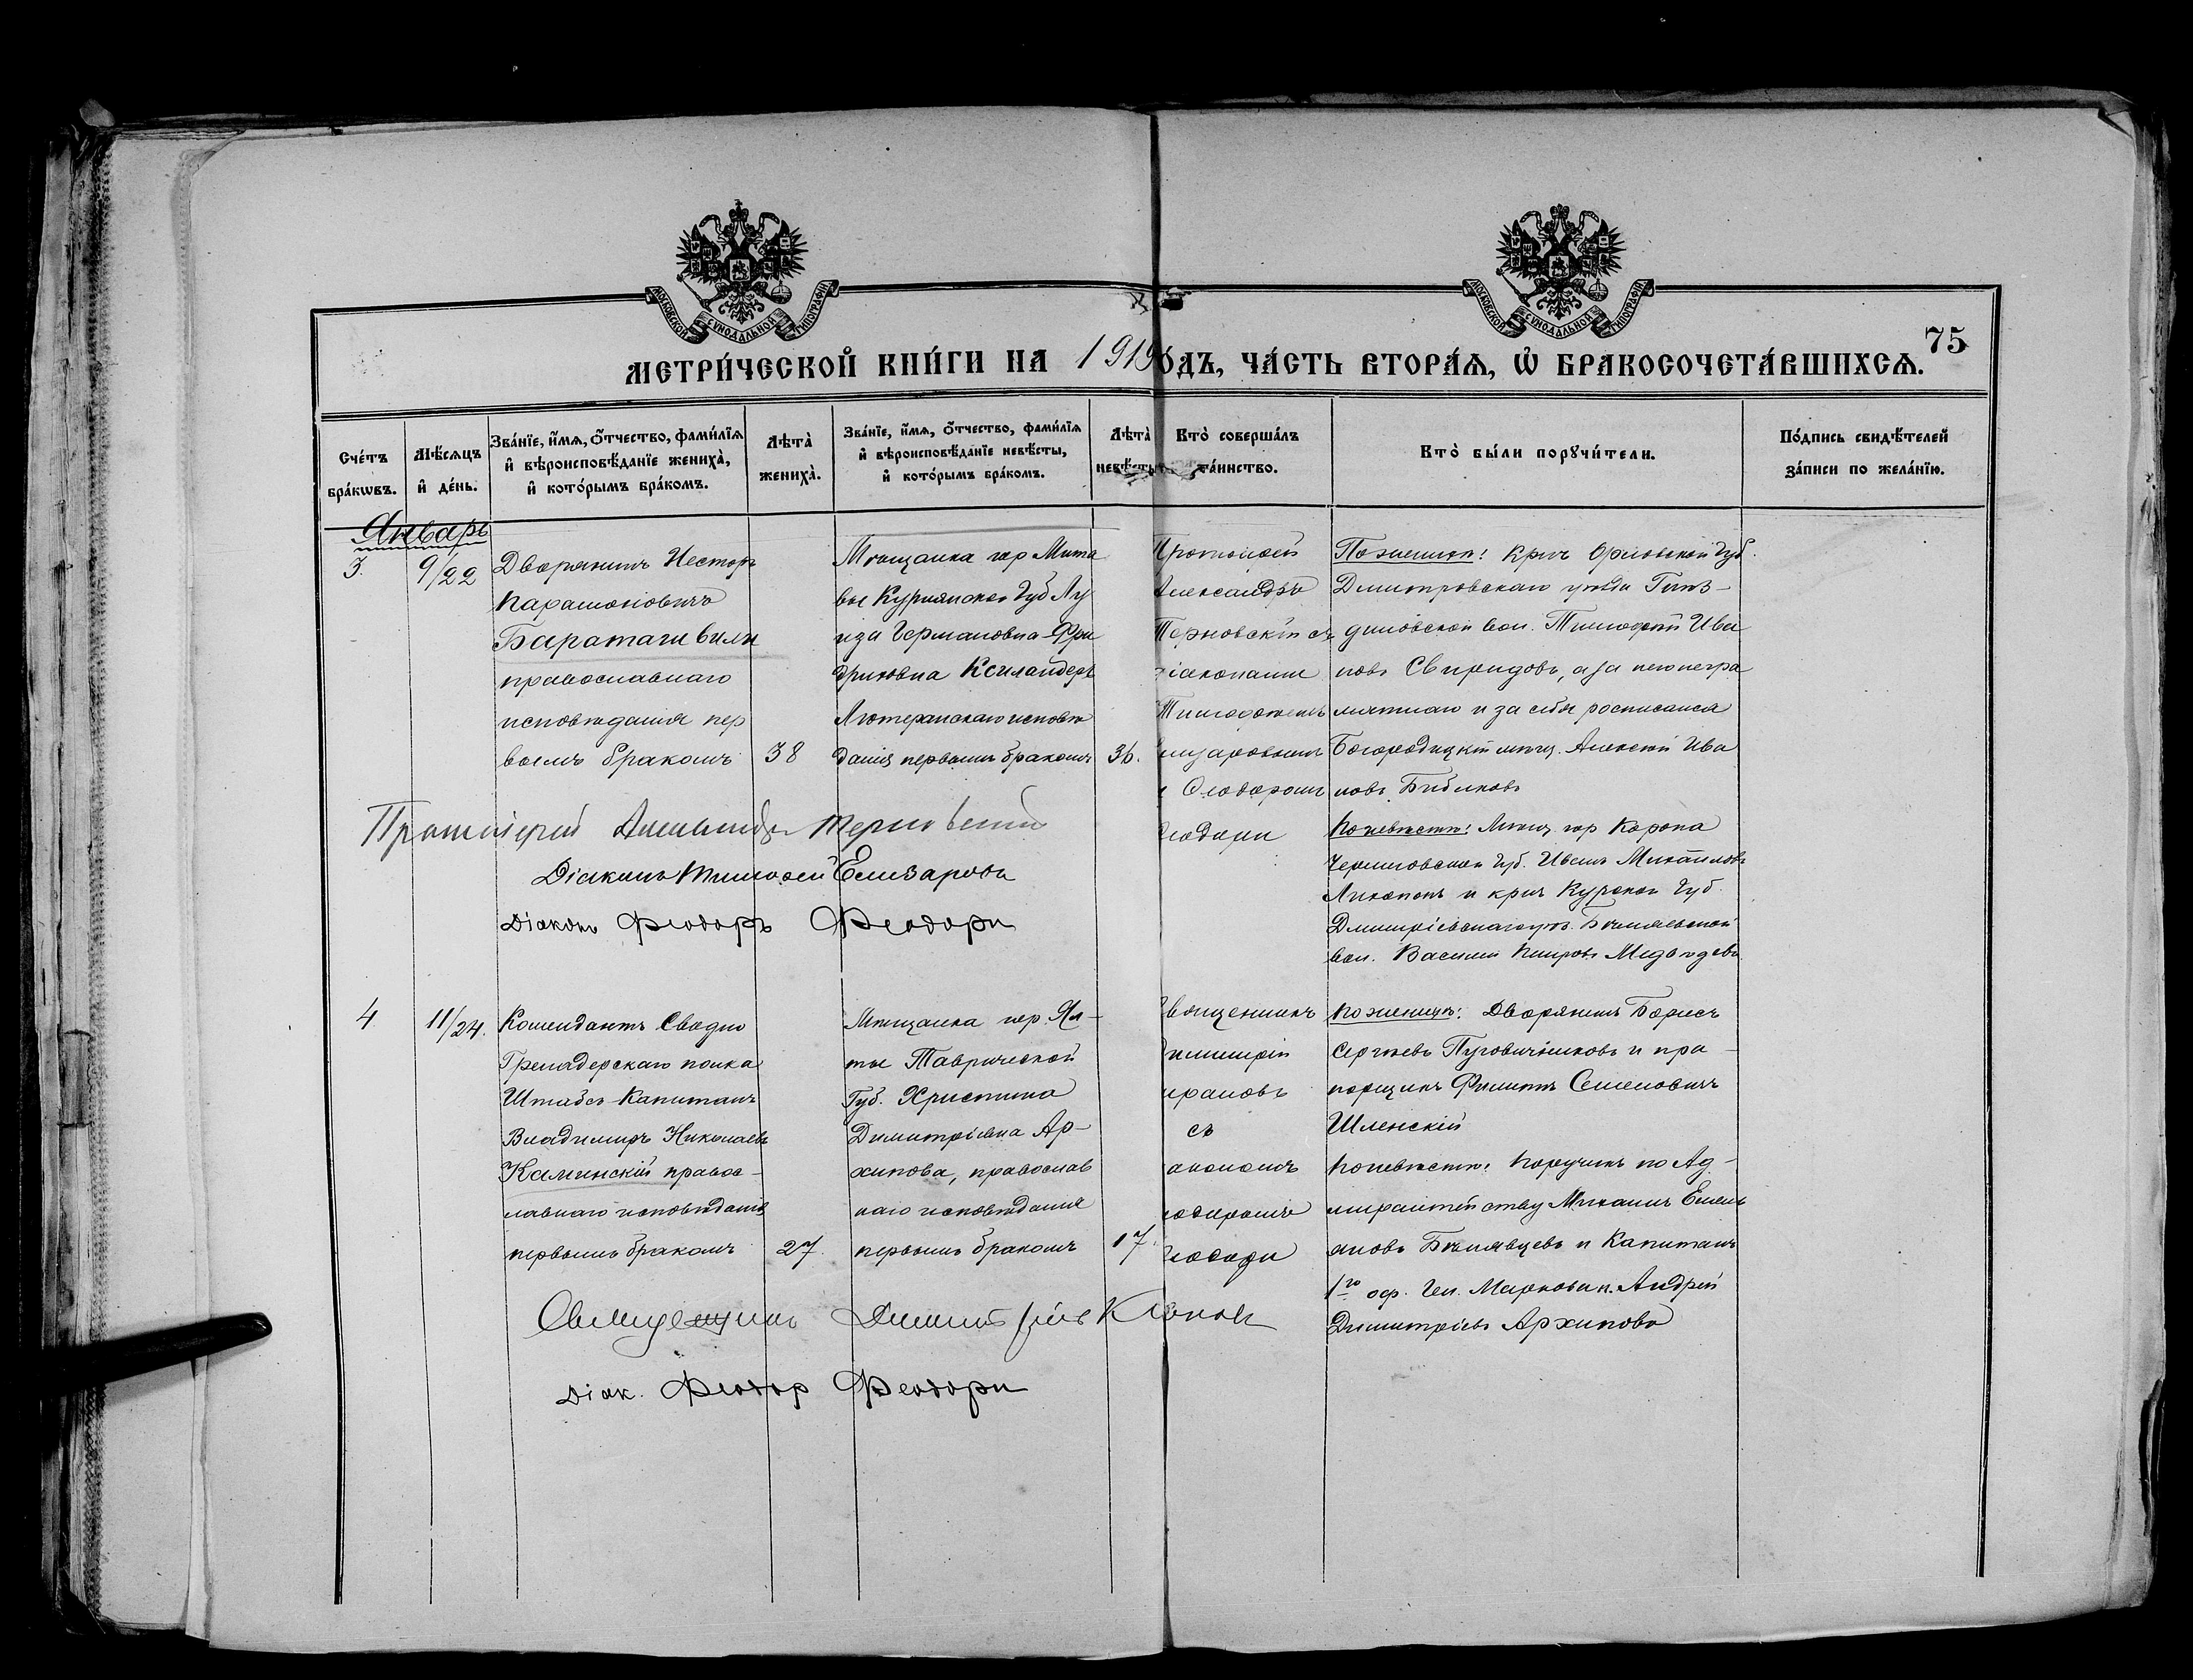 МОСКОВСКОЙ СѴНОДАЛЬНОЙ ТИПОГРАФІИ
МОСКОВСКОЙ СѴНОДАЛЬНОЙ ТИПОГРАФІИ
75
МЕТРИ́ЧЕСКОЙ КНИ́ГИ НА 1919 ѻ́дъ, ЧА́СТЬ ВТОРА́Ѧ, Ѡ҆ БРАКОСОЧЕТА́ВШИХСѦ.
Сче́тъ бра́кѡвъ.
Мѣ́сѧцъ и҆ де́нь.
Зва́нїе, и҆́мѧ, ѻ҆́тчество, фами́лїѧ
и҆ вѣроисповѣ́данїе жениха̀,
и҆ кото́рымъ бра́комъ.
Лѣта̀ жениха̀.
Зва́нїе, и҆́мѧ, ѻ҆́тчество, фами́лїѧ
и҆ вѣроисповѣ́данїе невѣ́сты,
и҆ кото́рымъ бра́комъ.
Лѣта̀ невѣ́сты
Кто̀ соверша́лъ
та́инство.
Кто̀ бы́ли порꙋчи́тели.
По́дпись свидѣ́телей
за́писи по жела́нїю.
Январь
3.
9/22
Дворянинъ Несторъ
Парамоновичъ
Бараташвили
православнаго
исповѣданія пер
вымъ бракомъ
38
Мѣщанка гор Мита
вы Курлянской Губ Лу
иза Германовна-Фри
дриховна Ксиландеръ
Лютеранскаго исповѣ
данія первымъ бракомъ
36.
Протоіерей
Александръ
Терновскій съ
діаконами
Тимофеемъ
лизаровымъ
и Ѳеодоромъ
еодори
По женихѣ: Крич Орловской Губ.
Дмитровскаго уѣзда Гнѣз-
диловской вол. Тимофей Ива
новъ Свиридовъ, а за него негра
мотнаго и за себя росписался
Богородицкій мѣщ. Алексѣй Ива
новъ Бибиковъ
По невѣстѣ: Мѣщ. гор Коропа
Черниговской Губ. Иванъ Михаиловъ
и крич Курской Губ.
вол. Василій
Протоіерей Александръ Терновскій
Діаконъ Тимофей Елизаровъ
Діаконъ Феодоръ Феодори
4
11/24.
Комендантъ Сводно
Гренадерскаго полка
Штабсъ-Капитанъ
Владимиръ Николаевъ
Каминскій правос-
лавнаго исповѣданія
первымъ бракомъ
27.
Мѣщанка гор. Ял-
ты Таврической
Губ. Христина
Димитріевна Ар-
хипова, православ
наго исповѣданія
первымъ бракомъ
17.
вященникъ
имитрій
ирановъ
съ
акономъ
еодоромъ
еодори
По женихѣ: Дворянинъ Борисъ
Сергѣевъ Пуговичниковъ и пра-
порщикъ Филиппъ Семеновичъ
Шленскій
По невѣстѣ: Поручикъ по Ад-
миралтейству Михаилъ Емель
яновъ и Капитанъ
1го оф. Ген. Маркова п. Андрей
Димитріевъ Архиповъ
Священникъ Димитрій
Діак. Феодор Феодори